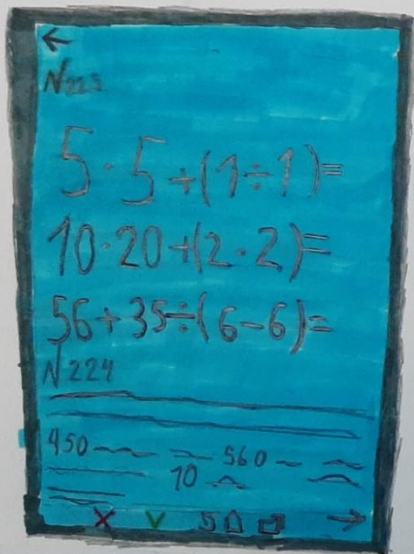 N223
5·5+(1÷1)=
10·20+(2·2)=
56+35÷(6-6)=
N224
450 560
10